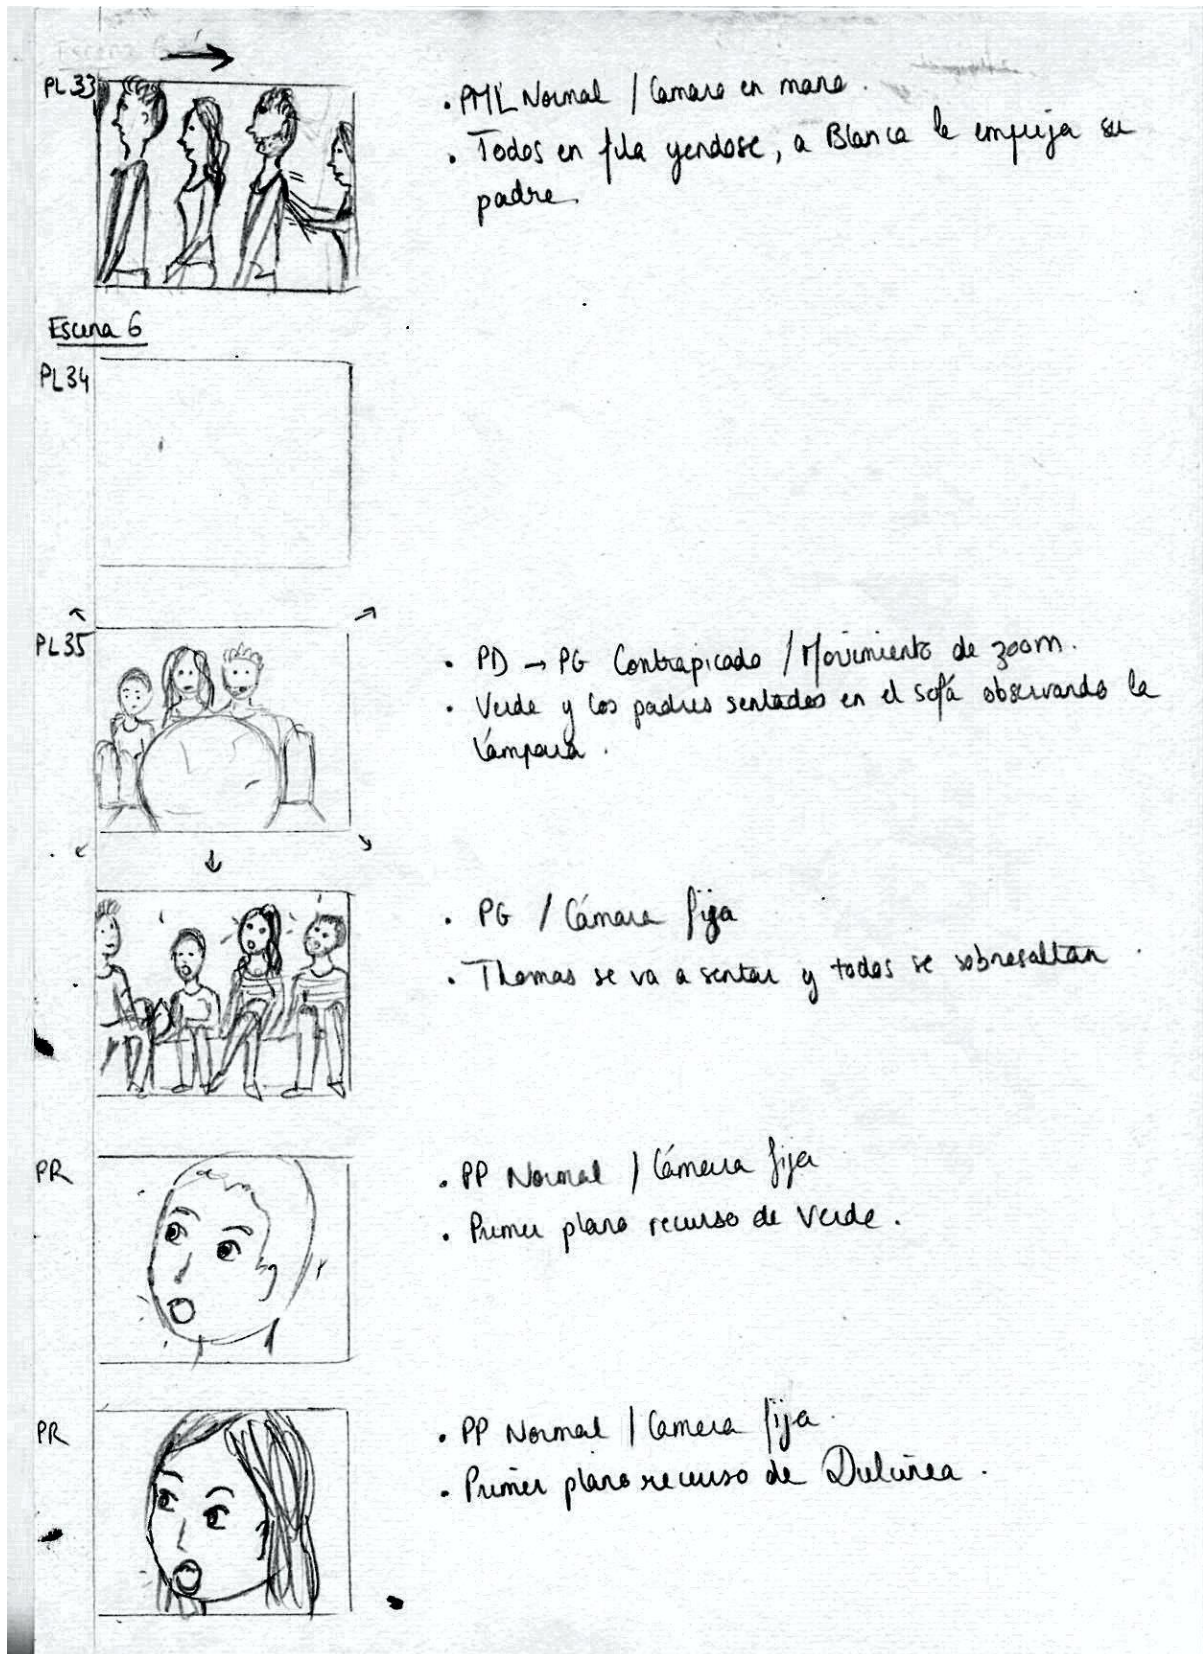 PL 33
• PML Normal / Camara en mano.
• Todos en fila yendose, a Blanca le empuja su
padre.
Escena 6
PL34
PL35
• PD → PG Contrapicado / Movimiento de zoom.
• Verde y los padres sentados en el sofá observando la
lámpara.
• PG / Cámara fija
• Thomas se va a sentar y todos se sobresaltan.
PR
• PP Normal / Cámera fija
• Primer plano recurso de Verde.
PR
• PP Normal / Camera fija.
• Primer plano recurso de Dulcinea.